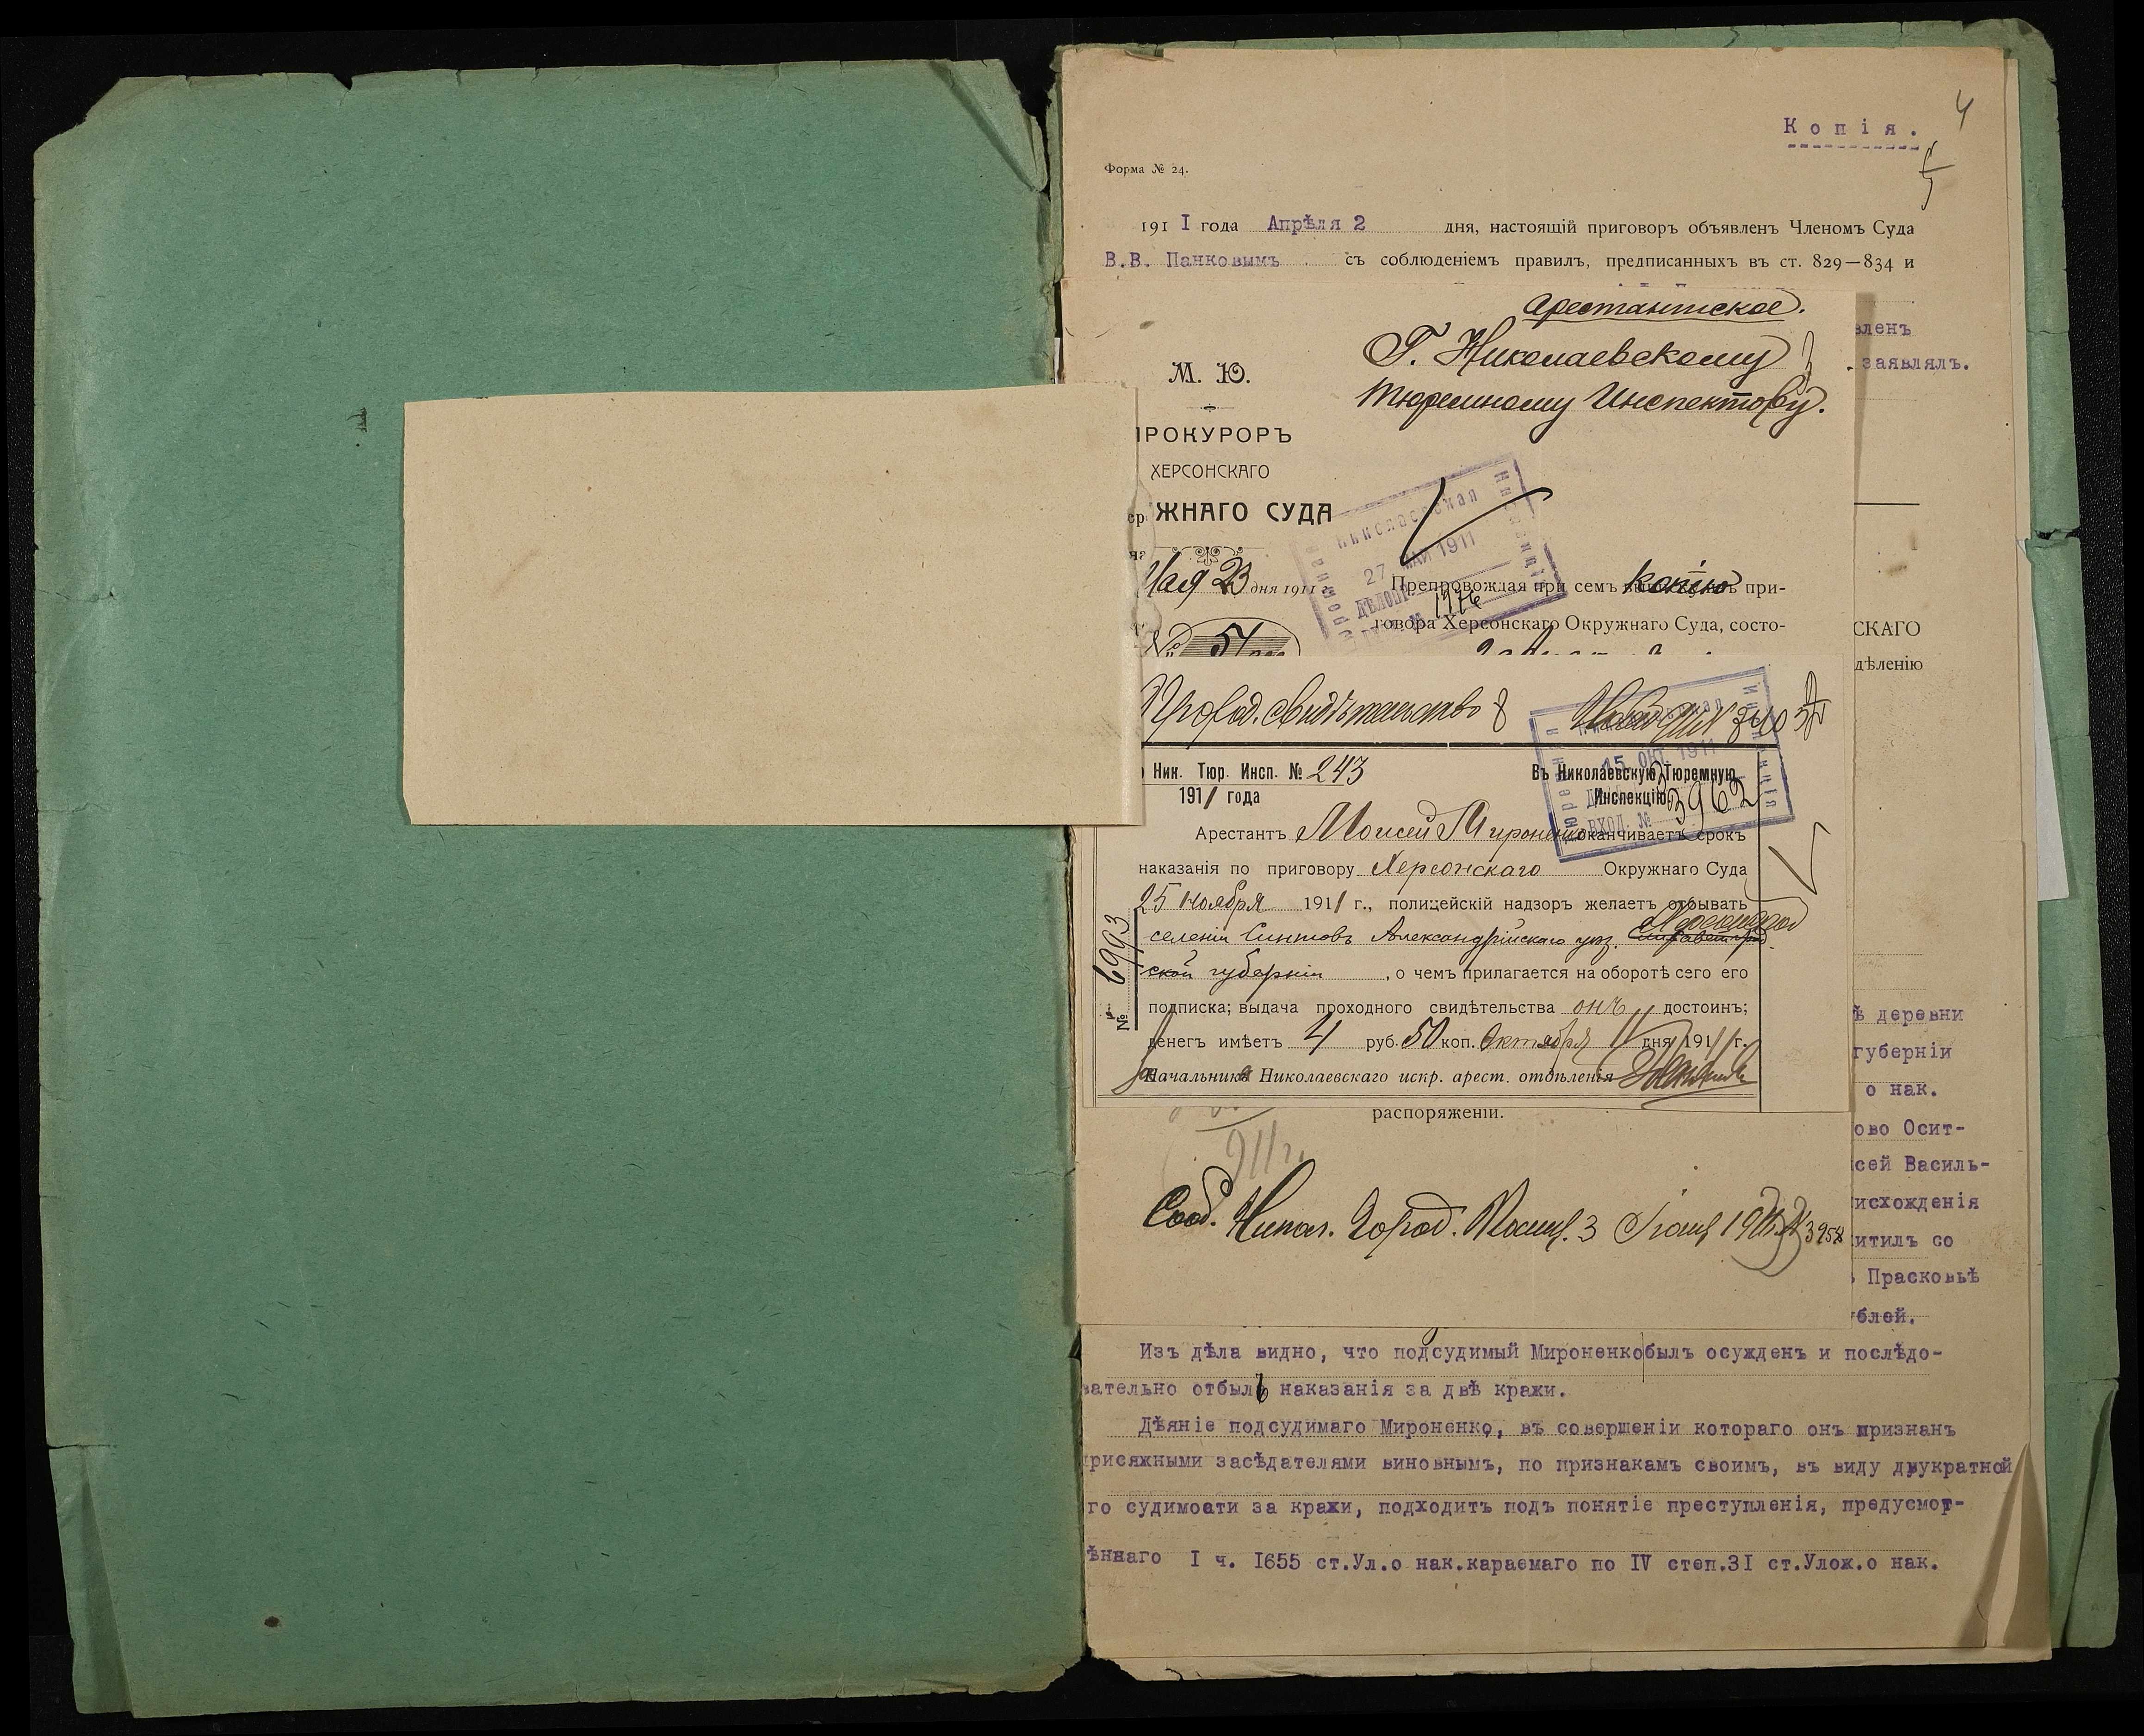 4
Копія.
Форма № 24.
191 I года Апрѣля 2 дня, настоящій приговоръ объявленъ Членомъ Суда
В.В. Панковымъ съ соблюденіемъ правилъ, предписанныхъ въ ст. 829—834 и
Арестантское.
Г. Николаевскому
Тюремному Инспектору.
вленъ
заявлялъ.
М. Ю.
РОКУРОРЪ
ХЕРСОНСКАГО
ЖНАГО СУДА
Мая 23 дня 1911
Николаевская
27 МАЙ 1911
1976
Препровождая при семъ копію при-
говора Херсонскаго Окружнаго Суда, состо-
СКАГО
дѣленію
№ 51
Проход. свидѣтельство
15 ОКТ 1911
ВХОД. №
3962
Ник. Тюр. Инсп. № 243
1911 года
Въ Николаевскую Тюремную
Инспекцію
Арестантъ Моисей Мироненко оканчиваетъ срокъ
наказанія по приговору Херсонскаго Окружнаго Суда
25 ноября 1911 г., полицейскій надзоръ желаетъ отбывать
селеніи Александрійскаго уѣз.
ской губерніи, о чемъ прилагается на оборотѣ сего его
подписка; выдача проходного свидѣтельства онъ достоинъ;
денегъ имѣетъ 4 руб. 50 коп. Октября 11 дня 1911 г.
Начальника Николаевскаго испр. арест. отдѣленія
№ 6993
распоряженіи.
911 г.
Сооб. Никол. Город. Полиц. 3 Іюня 1911 № 3958
ѣ деревни
губерніи
о нак.
ово Осит-
сей Василь-
исхожденія
итилъ со
Прасковьѣ
блей.
Изъ дѣла видно, что подсудимый Мироненко былъ осужденъ и послѣдо-
вательно отбылъ наказанія за двѣ кражи.
Дѣяніе подсудимаго Мироненко, въ совершеніи котораго онъ признанъ
рисяжными засѣдателями виновнымъ, по признакамъ своимъ, въ виду двукратной
го судимоати за кражи, подходитъ подъ понятіе преступленія, предусмот-
ѣннаго I ч. I655 ст.Ул.о нак.караемаго по IV степ.3I ст.Улож.о нак.